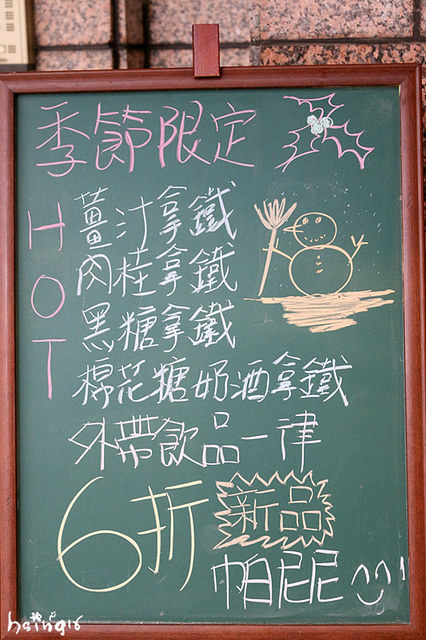 季節限定
HOT
薑汁拿鐵
肉桂拿鐵
黑糖拿鐵
棉花糖奶酒拿鐵
外帶飲品一律
6折
新品
帕尼尼^^!
hsing16